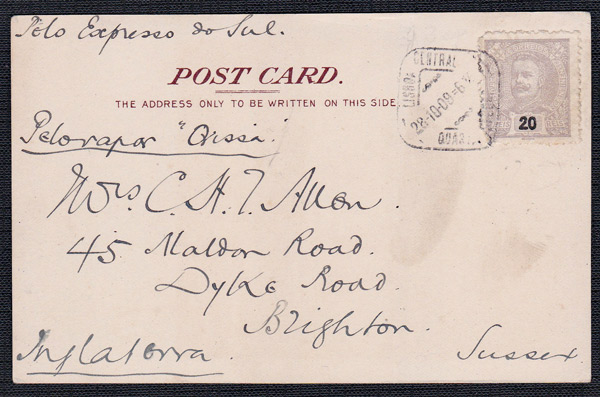 Pelo Expresso do Sul.
POST CARD.
THE ADDRESS ONLY TO BE WRITTEN ON THIS SIDE
LISBOA CENTRAL
28-10-09=6
20
Pelo vapor "Orissa".
Mrs C. H. T. Allen.
45 Maldon Road.
Dyke Road.
Brighton.
Inglaterra. Sussex